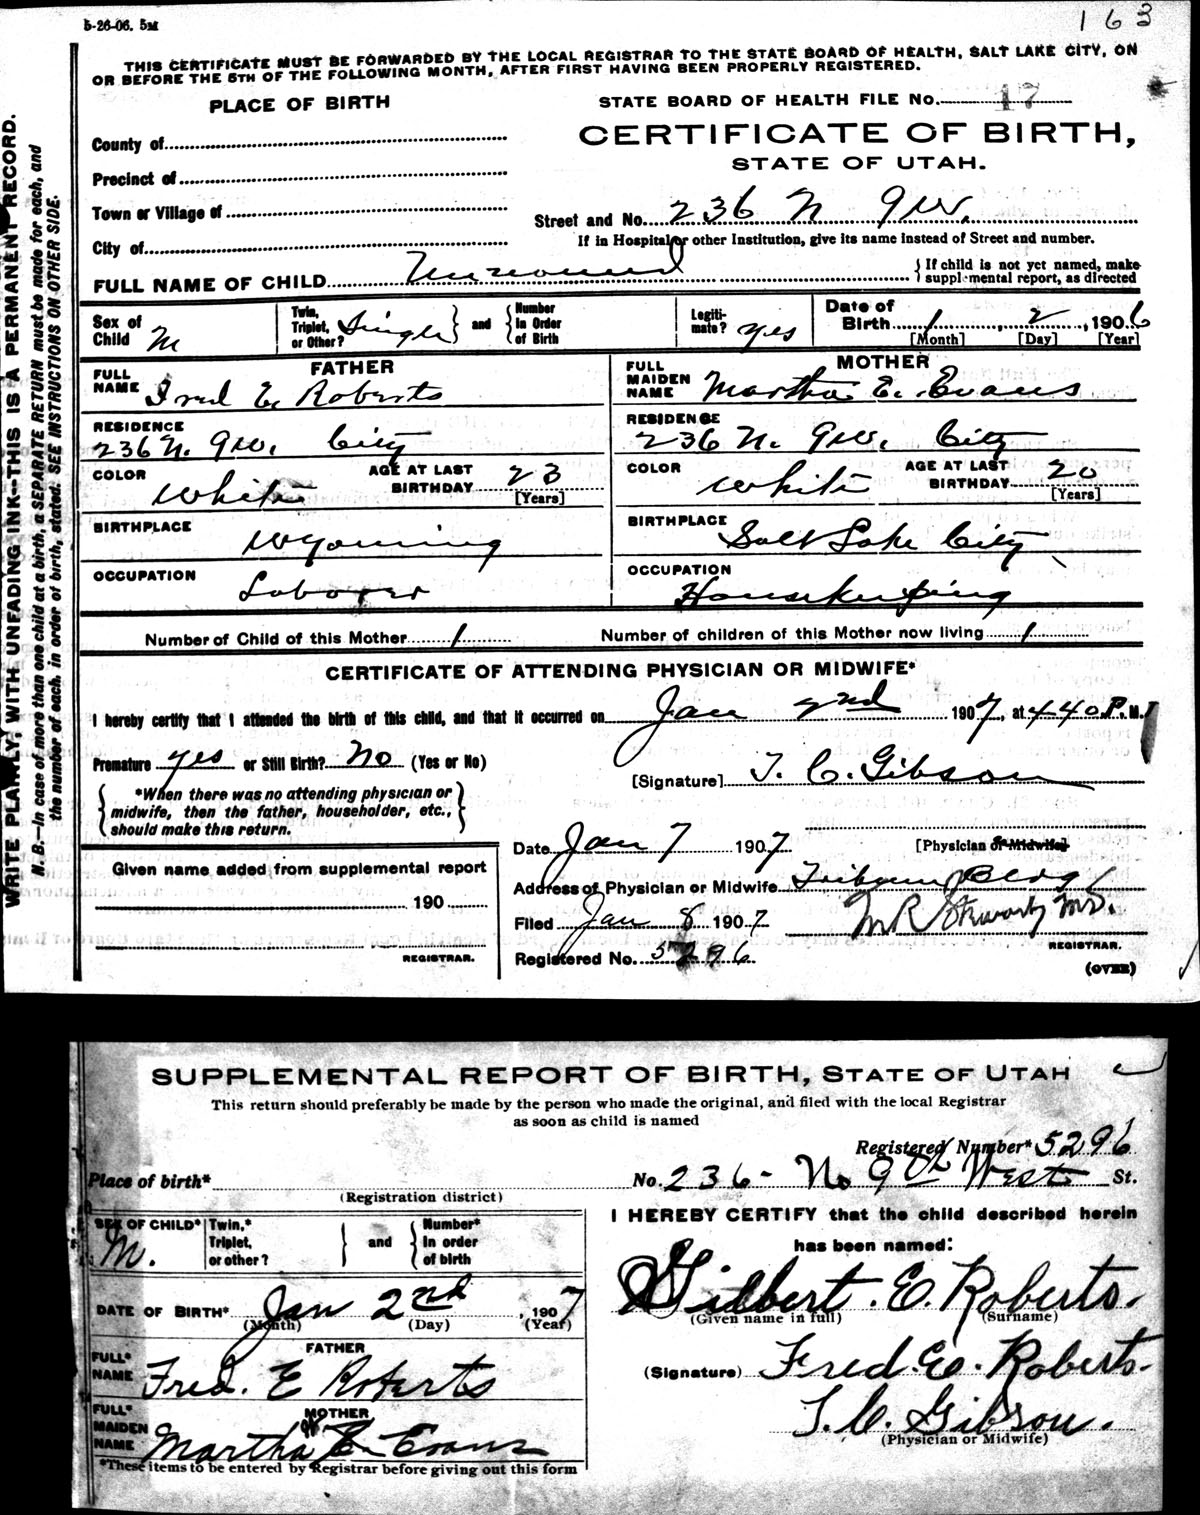 5-26-06. 5M
163
THIS CERTIFICATE MUST BE FORWARDED BY THE LOCAL REGISTRAR TO THE STATE BOARD OF HEALTH, SALT LAKE CITY, ON
OR BEFORE THE 5TH OF THE FOLLOWING MONTH, AFTER FIRST HAVING BEEN PROPERLY REGISTERED.
WRITE PLAINLY, WITH UNFADING INK—THIS IS A PERMANENT RECORD.
N.B.—In case of more than one child at a birth, a SEPARATE RETURN must be made for each, and
the number of each, in order of birth, stated. SEE INSTRUCTIONS ON OTHER SIDE.
PLACE OF BIRTH
County of
Precinct of
Town or Village of
City of
STATE BOARD OF HEALTH FILE No. 17
CERTIFICATE OF BIRTH,
STATE OF UTAH.
Street and No. 236 N 9 W.
If in Hospital or other Institution, give its name instead of Street and number.
FULL NAME OF CHILD Unnamed { If child is not yet named, make
supplemental report, as directed
Sex of
Child M
Twin,
Triplet,
or Other? Single } and { Number
in Order
of Birth
Legiti-
mate? yes
Date of
Birth 1, 2, 1906
[Month] [Day] [Year]
FATHER
FULL
NAME Fred E. Roberts
RESIDENCE
236 N. 9 W. City
COLOR White
AGE AT LAST
BIRTHDAY 23
[Years]
BIRTHPLACE Wyoming
OCCUPATION Laborer
MOTHER
FULL
MAIDEN
NAME Martha E. Evans
RESIDENCE
236 N. 9 W. City
COLOR White
AGE AT LAST
BIRTHDAY 20
[Years]
BIRTHPLACE Salt Lake City
OCCUPATION Housekeeping
Number of Child of this Mother 1
Number of children of this Mother now living 1
CERTIFICATE OF ATTENDING PHYSICIAN OR MIDWIFE*
I hereby certify that I attended the birth of this child, and that it occurred on Jan 2nd 1907, at 4 40 P. M.
Premature yes or Still Birth? No (Yes or No)
[Signature] T. C. Gibson
{ *When there was no attending physician or
midwife, then the father, householder, etc.,
should make this return. }
[Physician or Midwife]
Date Jan 7 1907
Address of Physician or Midwife Tribune Bldg
Filed Jan 8 1907
REGISTRAR.
Registered No. 5296
(OVER)
Given name added from supplemental report
190
REGISTRAR.
SUPPLEMENTAL REPORT OF BIRTH, STATE OF UTAH
This return should preferably be made by the person who made the original, and filed with the local Registrar
as soon as child is named
Registered Number* 5296
Place of birth*
(Registration district)
No. 236 - No 9th West St.
SEX OF CHILD*
M.
Twin,*
Triplet,
or other? } and { Number*
in order
of birth
DATE OF BIRTH* Jan 2nd, 1907
(Month) (Day) (Year)
FATHER
FULL*
NAME Fred. E Roberts
MOTHER
FULL*
MAIDEN
NAME Martha E. Evans
*These items to be entered by Registrar before giving out this form
I HEREBY CERTIFY that the child described herein
has been named:
Gilbert. E. Roberts.
(Given name in full) (Surname)
(Signature) Fred E. Roberts.
T. C. Gibson.
(Physician or Midwife)